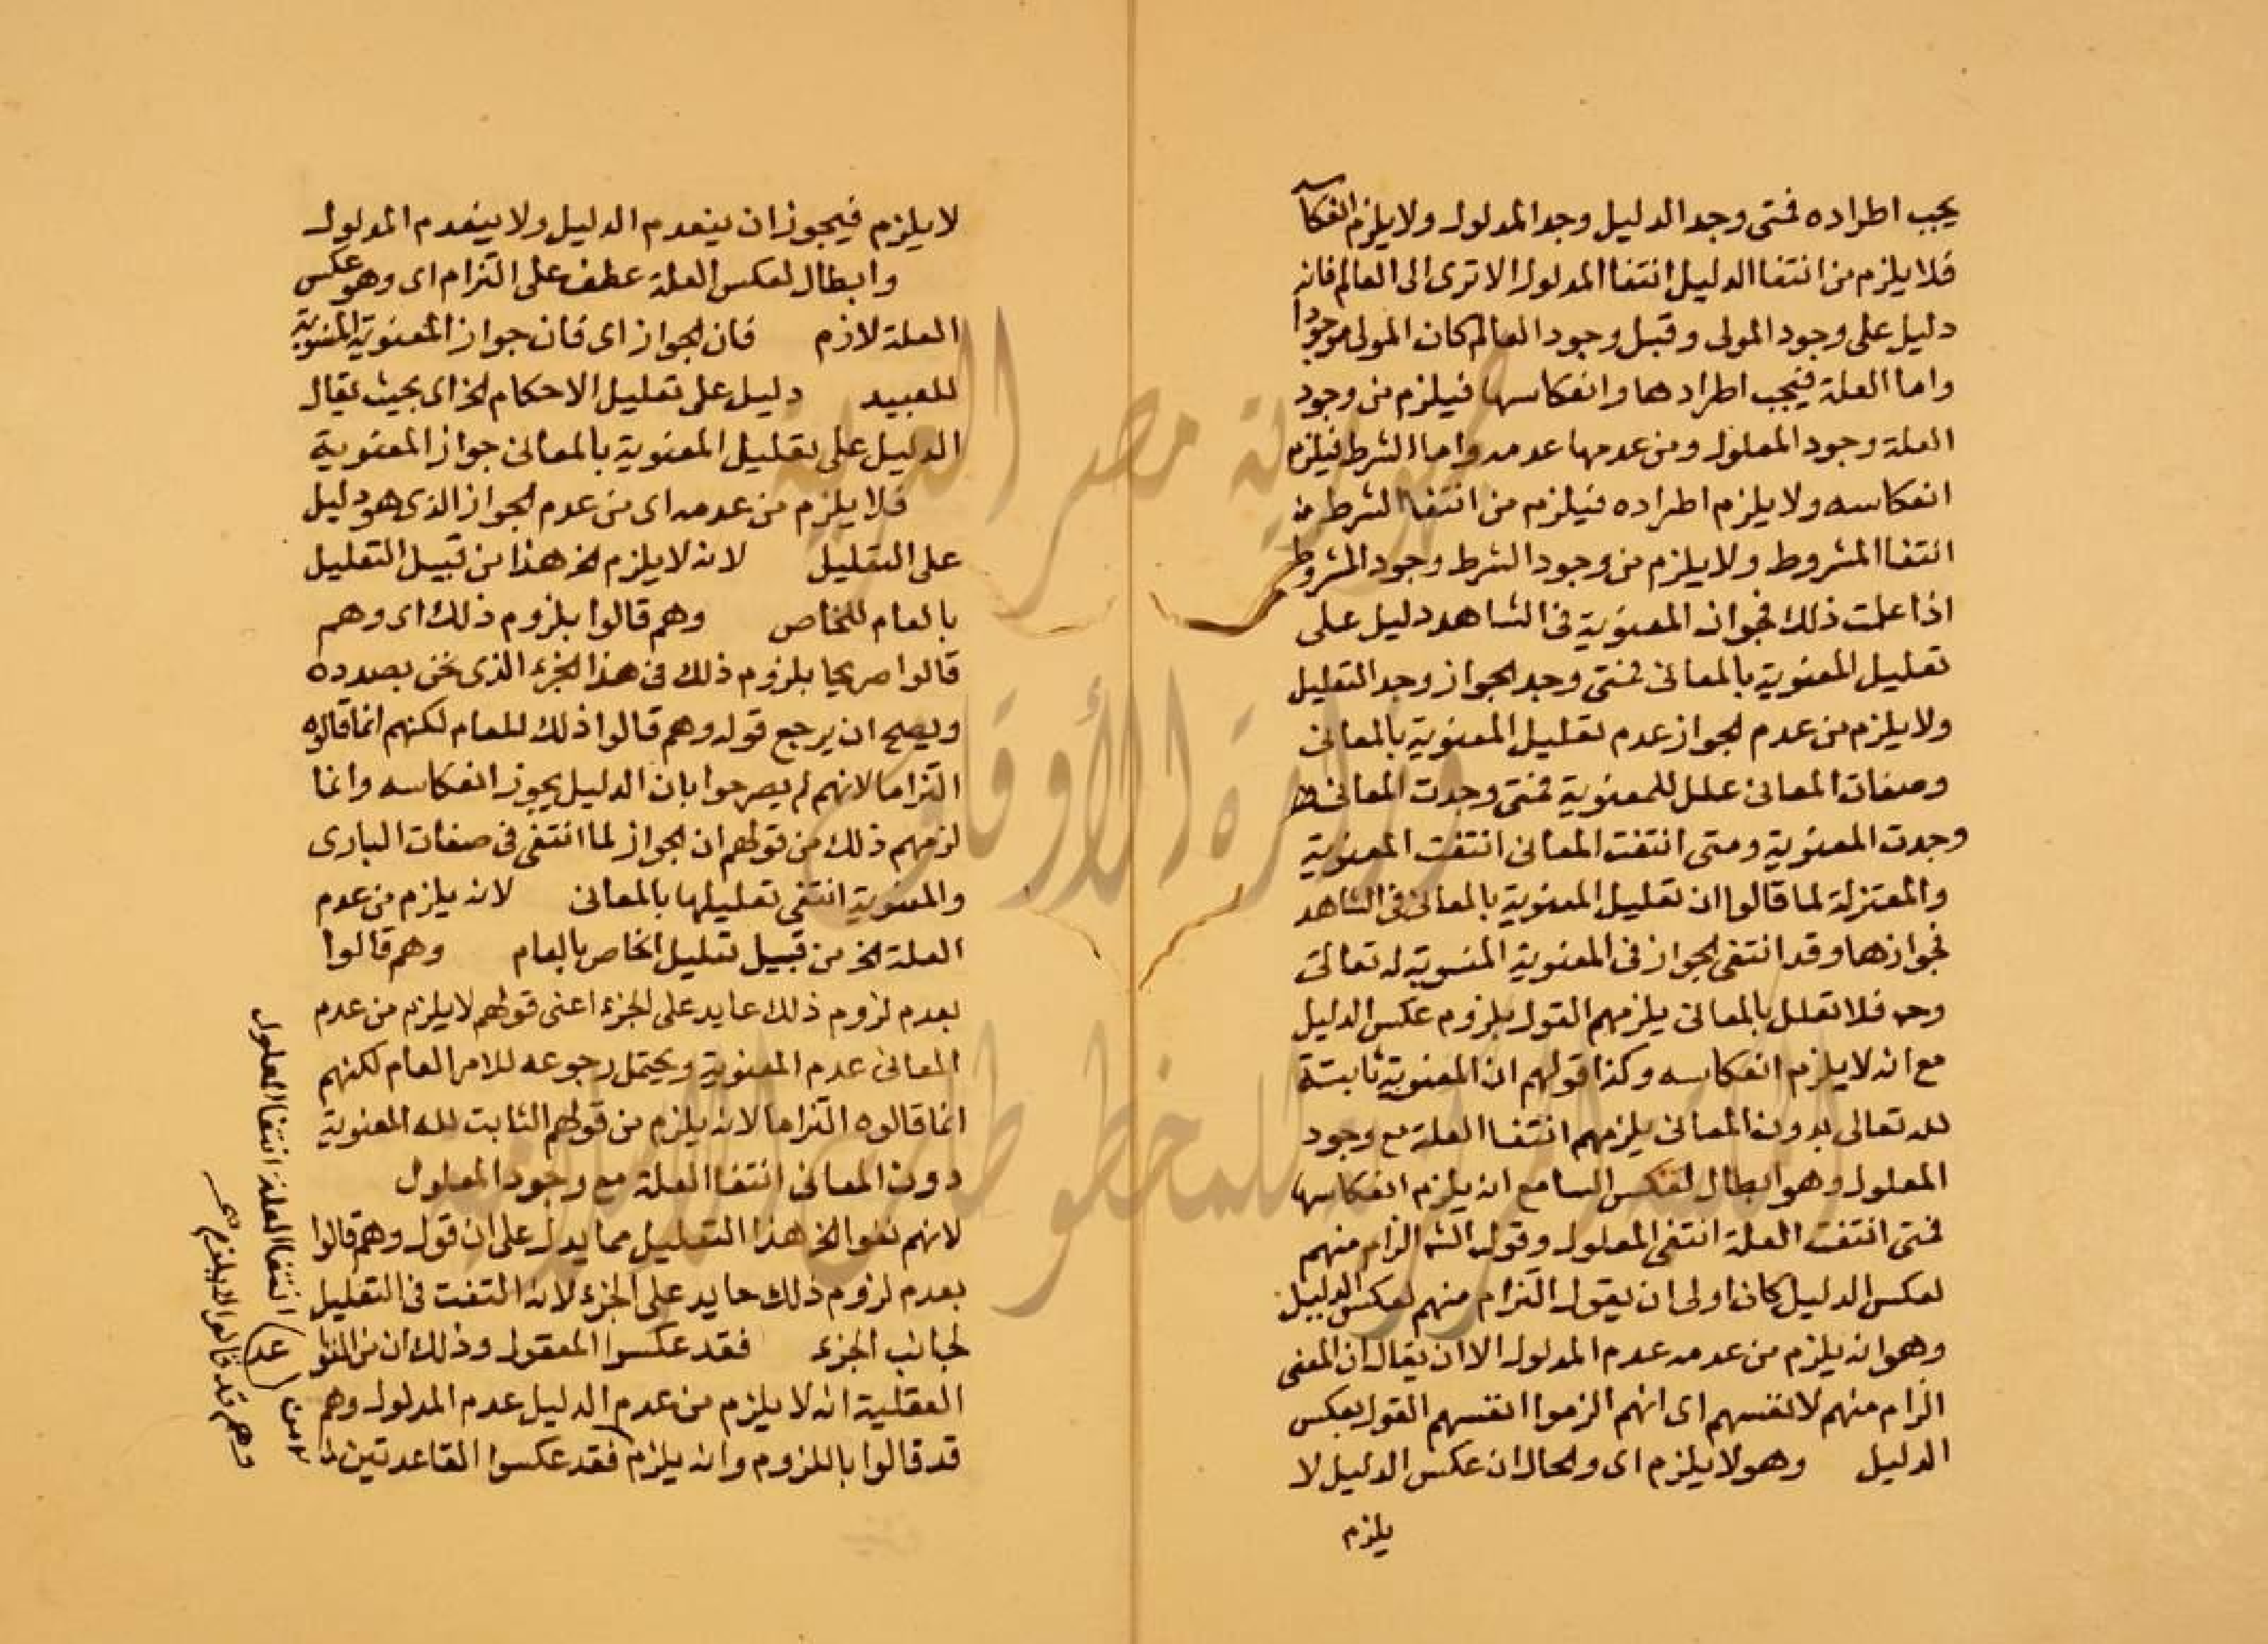 يجب اطراده فمتى وجد الدليل وجد المدلول ولا يلزم انعكاسه
فلا يلزم من انتفا الدليل انتفا المدلول الا ترى الى العالم فانه
دليل على وجود المولى وقبل وجود العالم كان المولى موجودا
واما العلة فيجب اطرادها وانعكاسها فيلزم من وجود
العلة وجود المعلول ومن عدمها عدمه واما الشرط فيلزم
انعكاسه ولا يلزم اطراده فيلزم من انتفا الشرط
انتفا المشروط ولا يلزم من وجود الشرط وجود المشروط
اذا علمت ذلك فجواز المعنوية في الشاهد دليل على
تعليل المعنوية بالمعاني فمتى وجد الجواز وجد التعليل
ولا يلزم من عدم الجواز عدم تعليل المعنوية بالمعاني
وصفات المعاني علل للمعنوية فمتى وجدت المعاني
وجدت المعنوية ومتى انتفت المعاني انتفت المعنوية
والمعتزلة لما قالوا ان تعليل المعنوية بالمعاني في الشاهد
لجوازها وقد انتفى الجواز في المعنوية المنسوبة له تعالى
وح فلا تعلل بالمعاني يلزمهم القول بلزوم عكس الدليل
مع انه لا يلزم انعكاسه وكذا قولهم ان المعنوية ثابتة
لله تعالى بدون المعاني يلزمهم انتفا العلة مع وجود
المعلول وهو ابطال لعكس مع انه يلزم انعكاسها
فمتى انتفت العلة انتفى المعلول وقول الش الزام منهم
لعكس الدليل كان اولى ان يقول التزام منهم لعكس الدليل
وهو انه يلزم من عدمه عدم المدلول الا ان يقال ان المعنى
الزام منهم لانفسهم اى انهم الزموا انفسهم القول بعكس
الدليل وهو لا يلزم اى والحال ان عكس الدليل لا
يلزم
لا يلزم فيجوز ان ينعدم الدليل ولا ينعدم المدلول
وابطال لعكس العلة عطف على التزام اى وهو عكس
العلة لازم فان الجواز اى فان جواز المعنوية المنسوبة
للعبيد دليل على تعليل الاحكام الخ اى بحيث يقال
الدليل على تعليل المعنوية بالمعاني جواز المعنوية
فلا يلزم من عدمه اى من عدم الجواز الذى هو دليل
على التعليل لانه لا يلزم الخ هذا من قبيل التعليل
بالعام للخاص وهم قالوا بلزوم ذلك اى وهم
قالوا صريحا بلزوم ذلك في هذا الجزء الذى نحن بصدده
ويصح ان يرجع قوله وهم قالوا ذلك للعام لكنهم انما قالوه
التزاما لانهم لم يصرحوا بان الدليل يجوز انعكاسه وانما
لزمهم ذلك من قولهم ان الجواز لما انتفى في صفات البارى
والمعنوية انتفى تعليلها بالمعاني لانه يلزم من عدم
العلة الخ من قبيل تعليل الخاص بالعام وهم قالوا
بعدم لزوم ذلك عايد على الجزء اعنى قولهم لا يلزم من عدم
المعاني عدم المعنوية ويحتمل رجوعه للامر العام لكنهم
انما قالوه التزاما لانه يلزم من قولهم الثابت لله المعنوية
دون المعاني انتفا العلة مع وجود المعلول
لانهم نفوا الخ هذا التعليل مما يدل على ان قوله وهم قالوا
بعدم لزوم ذلك عايد على الجزء لانه التفت في التعليل
لجانب الجزء فقد عكسوا المعقول وذلك ان من
العقلية انه لا يلزم من عدم الدليل عدم المدلول وهم
قد قالوا باللزوم وانه يلزم فقد عكسوا القاعدتين
انتفا العلة انتفا المعلول
وهم قد قالوا لا يلزم
جمهورية مصر العربية
وزارة الأوقاف